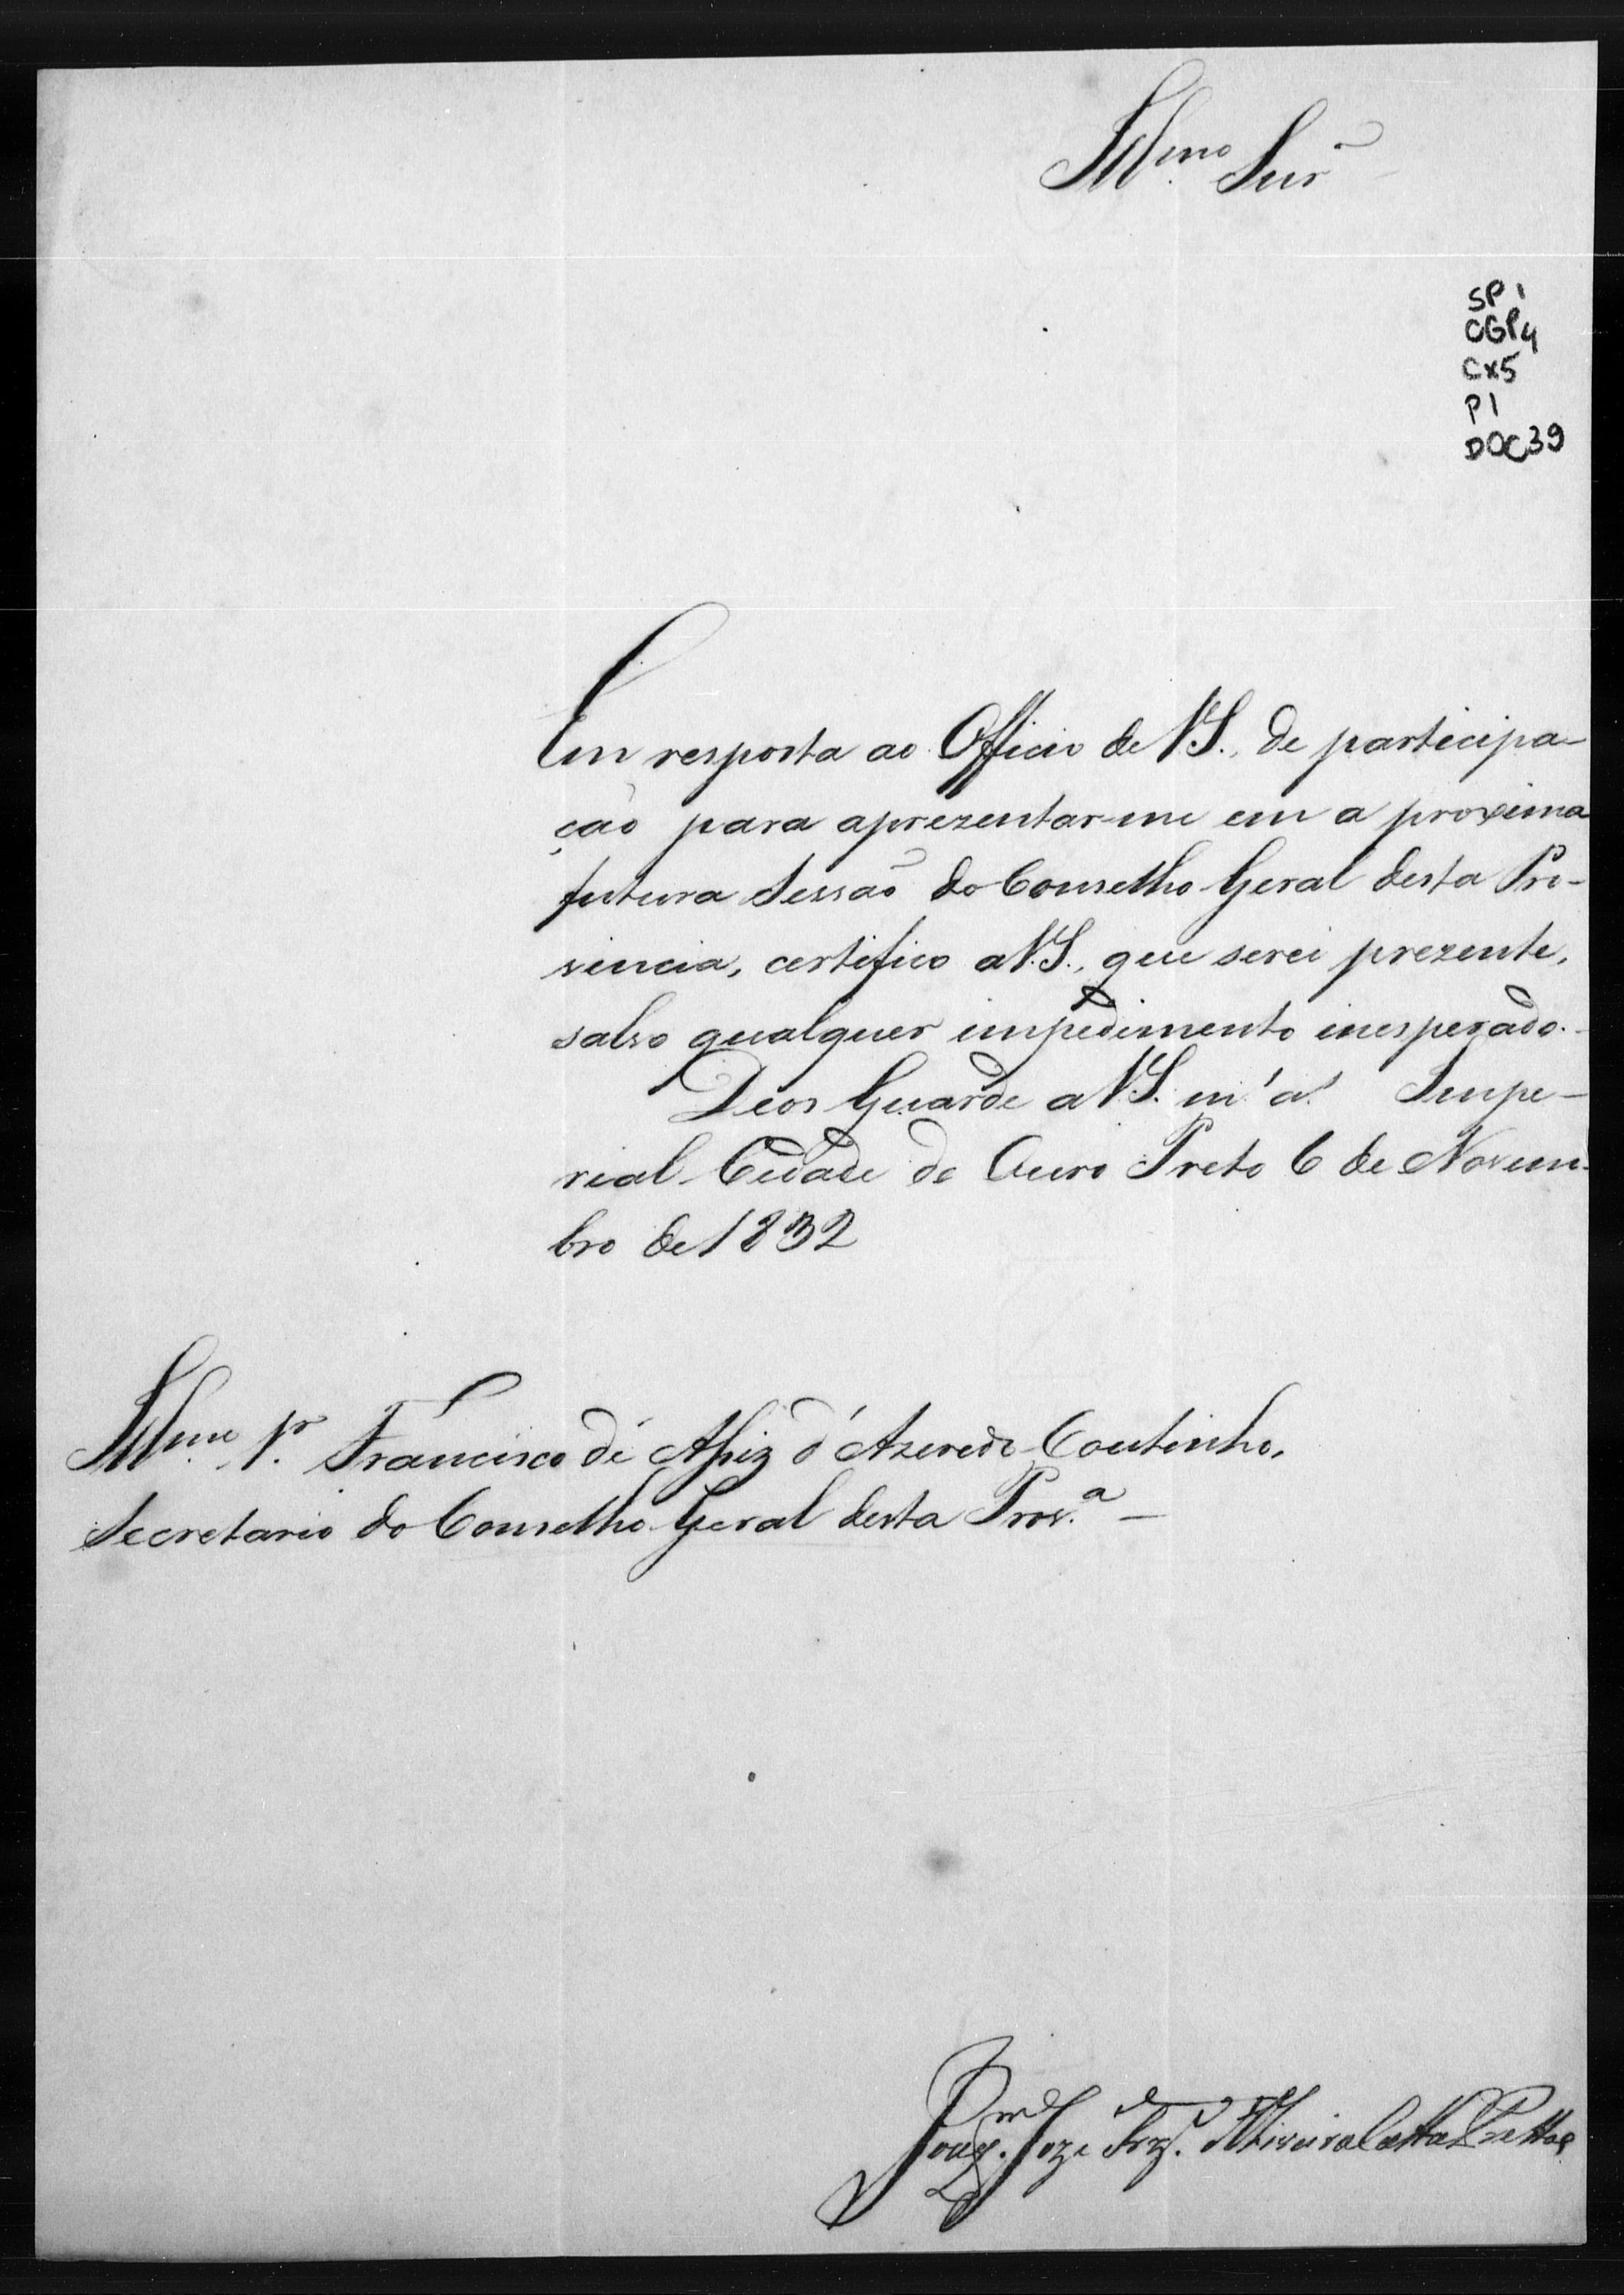 Illmo Snr
SP 1
CGP4
CX5
P1
DOC39
Em resposta ao Officio de V.S., de participa-
ção para aprezentar-me em a proxima
futura Sessão do Conselho Geral desta Pro-
vincia, certifico a V.S., que serei prezente,
salvo qualquer impedimento inesperado.
Deos Guarde a V.S. m. a. Impe-
rial Cidade de Ouro Preto 6 de Novem-
bro de 1832
Illmo Sr. Francisco de Assiz d'Azeredo Coutinho,
Secretario do Conselho Geral desta Prov.a
Joaq.m Joze